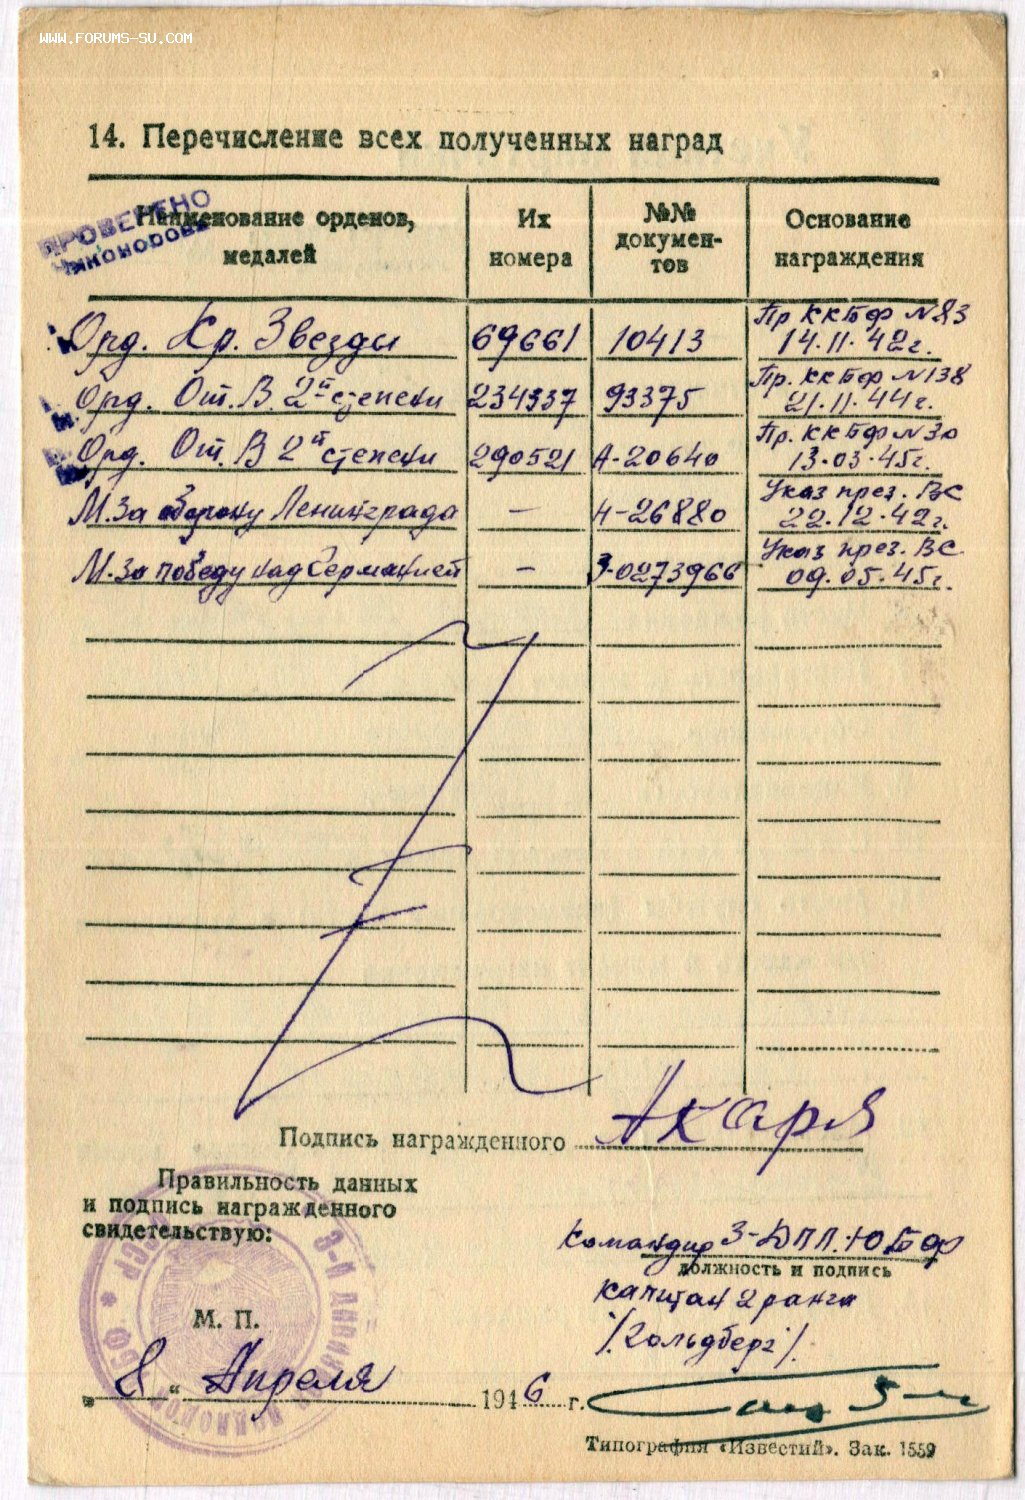 WWW.FORUMS-SU.COM
14. Перечисление всех полученных наград
ПРОВЕРЕНО
Наименование орденов, медалей
Их номера
№№ документов
Основание награждения
Орд. Кр. Звезды 69661 10413 Пр ККБФ №83 14.11.42г.
Орд. От. В. 2й степени 234337 93375 Пр. ККБФ №138 21.11.44г.
Орд. От. В 2й степени 290521 А-20640 Пр. ККБФ №30 13.03.45г.
М. За оборону Ленинграда — А-26880 Указ през. ВС 22.12.42г.
М. За победу над Германией — З-0273966 Указ през. ВС. 09.05.45г.
Подпись награжденного
Правильность данных
и подпись награжденного
свидетельствую:
Командир 3-ДПЛ. ЮБФ
должность и подпись
капитан 2 ранга
/Гольдберг/.
М. П.
„8“ Апреля 1946 г.
Типография «Известий». Зак. 1559